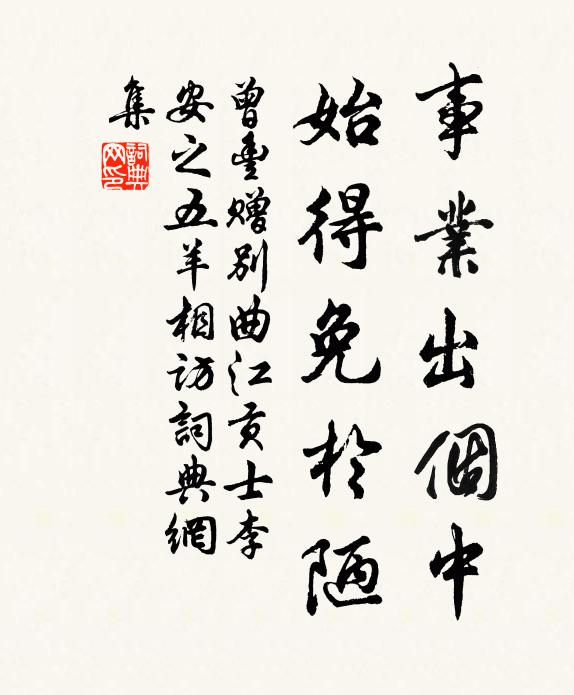 事業出個中
始得免於陋
曾豊贈別曲江貢士李
安之五羊相訪詞典網
集
詞典
网印